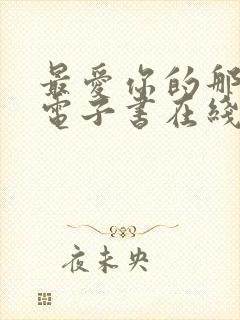 最愛你的那
電子書在綫
夜未央